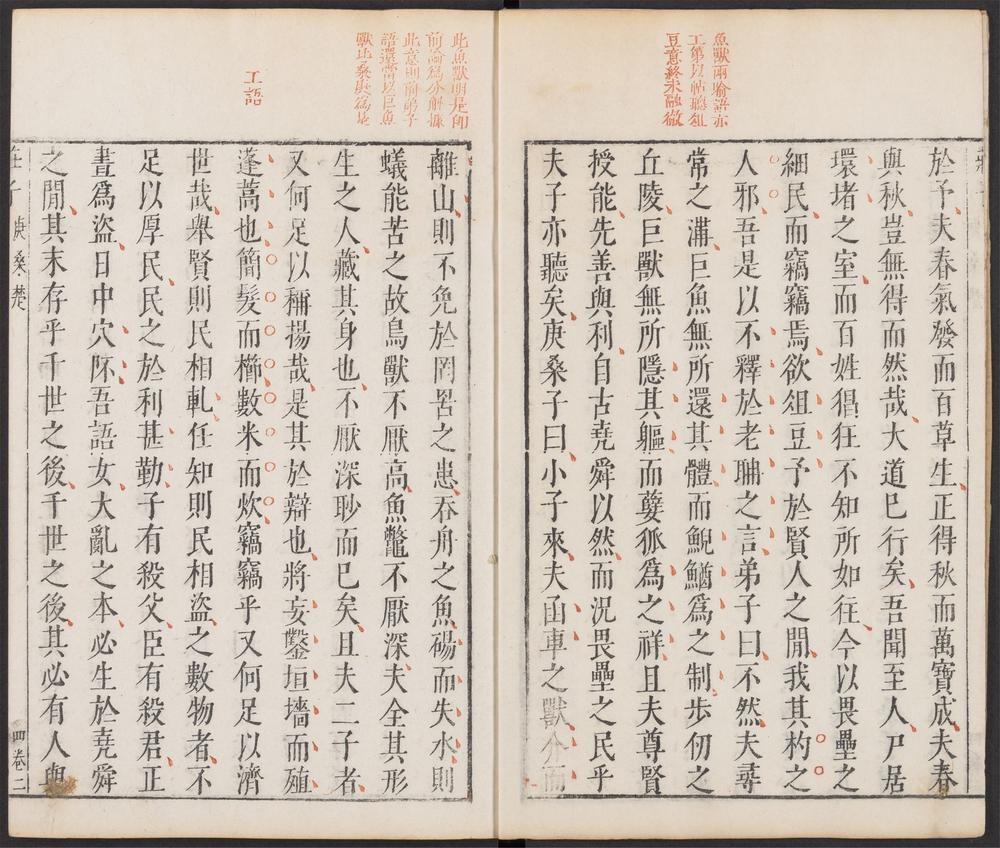 魚獸兩喻語亦
工第以帖聽俎
豆意終未融徹
於予夫春氣發而百草生正得秋而萬寶成夫春
與秋豈無得而然哉大道已行矣吾聞至人尸居
環堵之室而百姓猖狂不知所如往今以畏壘之
細民而竊竊焉欲俎豆予於賢人之閒我其杓之
人邪吾是以不釋於老聃之言弟子曰不然夫尋
常之溝巨魚無所還其體而鯢鰌為之制步仞之
丘陵巨獸無所隱其軀而㜸狐為之祥且夫尊賢
授能先善與利自古堯舜以然而況畏壘之民乎
夫子亦聽矣庚桑子曰小子來夫函車之獸介而
此魚獸明是卽
前喻為分解據
此意則前弟子
語還當以巨魚
獸比桑庚為是
工語
離山則不免於罔罟之患吞舟之魚碭而失水則
蟻能苦之故鳥獸不厭高魚鼈不厭深夫全其形
生之人藏其身也不厭深眇而已矣且夫二子者
又何足以稱揚哉是其於辯也將妄鑿垣墻而殖
蓬蒿也簡髮而櫛數米而炊竊竊乎又何足以濟
世哉舉賢則民相軋任知則民相盜之數物者不
足以厚民民之於利甚勤子有殺父臣有殺君正
晝為盜日中穴阫吾語女大亂之本必生於堯舜
之閒其末存乎千世之後千世之後其必有人與
莊子 庚桑楚 四卷二